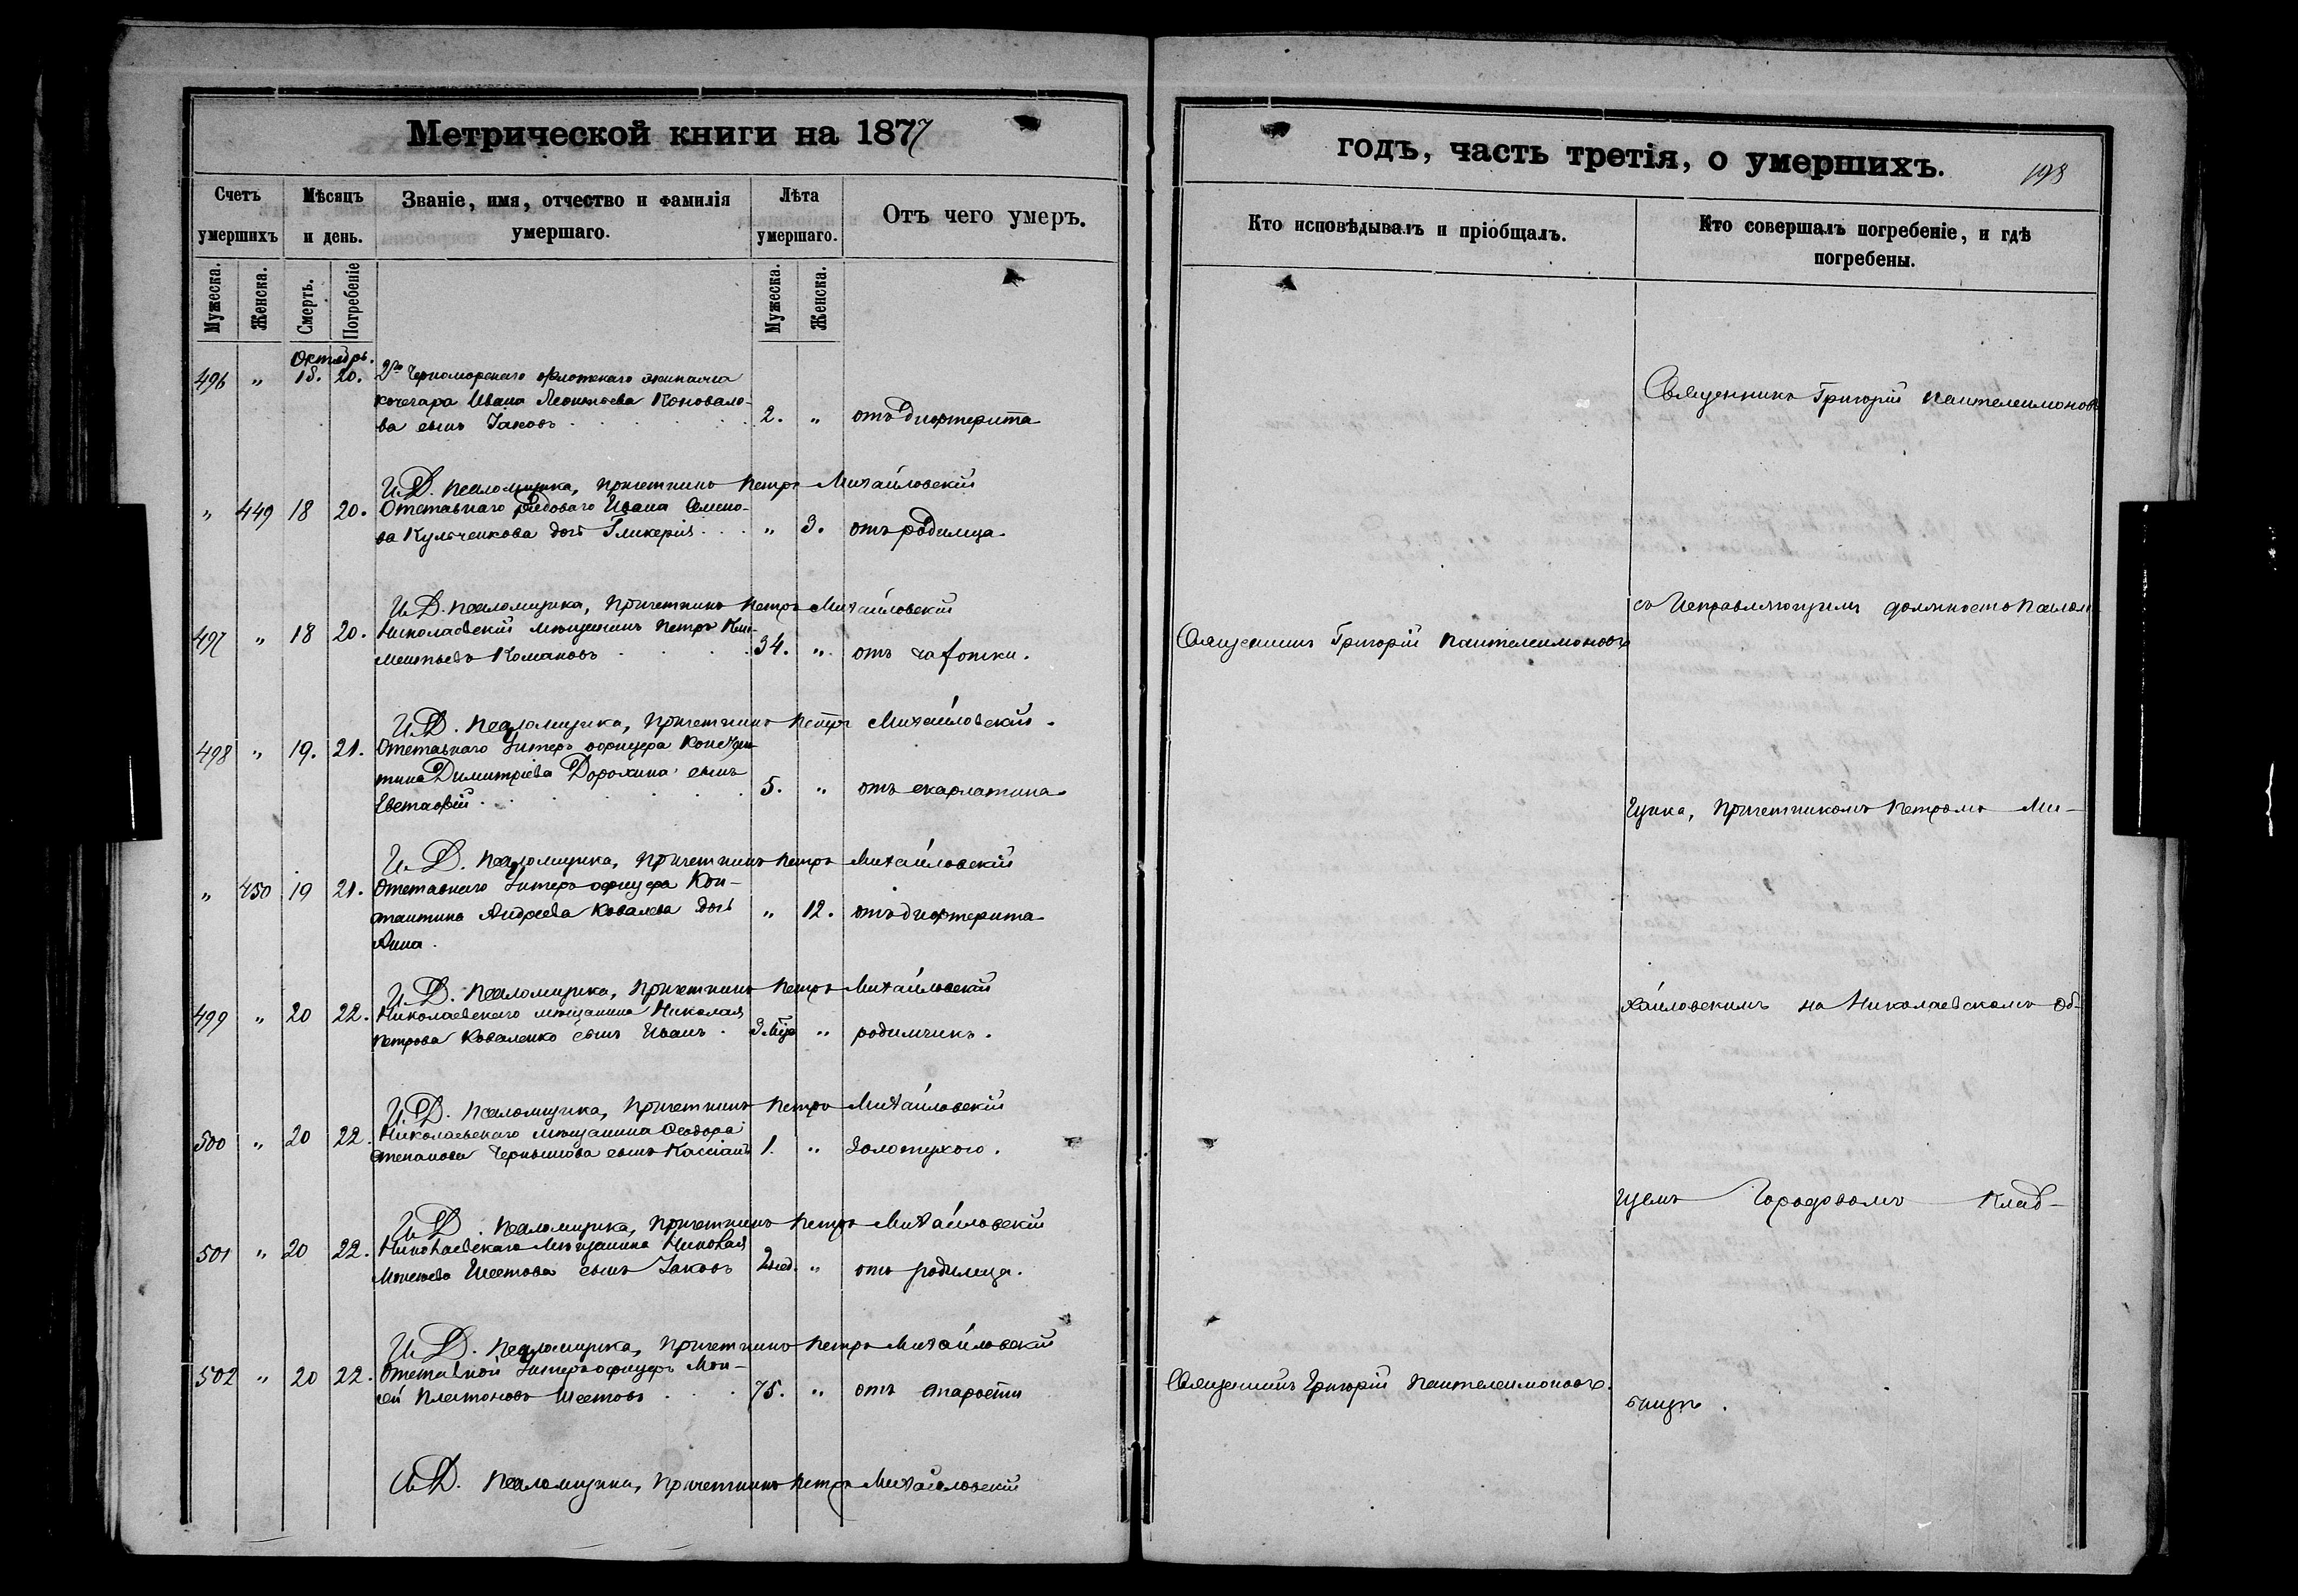 Метрической книги на 1877
Счетъ умершихъ
Мѣсяцъ и день.
Званіе, имя, отчество и фамилія умершаго.
Лѣта умершаго.
Отъ чего умеръ.
Мужеска.
Женска.
Смерть.
Погребеніе
Мужеска.
Женска.
Октябрь.
496 " 18. 20. 2го Черноморскаго флотскаго экипажа
кочегара Ивана Леонтьева Коновало-
ва сынъ Іаковъ 2. " отъ дифтерита
И.Д. псаломщика, причетникъ Петръ Михайловскій
" 449 18 20. Отставнаго рядоваго Ивана Семено-
ва Кульченкова дочь Гликерія " 3. отъ родимца.
И.Д. псаломщика, причетникъ Петръ Михайловскій
497 " 18 20. Николаевскій мѣщанинъ Петръ Кли-
ментьевъ Комановъ 34. " отъ чахотки.
И.Д. псаломщика, причетникъ Петръ Михайловскій.
498 " 19. 21. Отставнаго Унтеръ офицера Констан-
тина Димитріева Дорохина сынъ
Евстафій 5. " отъ скарлатина
И.Д. псаломщика, причетникъ Петръ Михайловскій
" 450 19 21. Отставнаго Унтеръ офицера Кон-
стантина Андреева Ковалева дочь " 12. отъ дифтерита
Анна.
И.Д. псаломщика, причетникъ Петръ Михайловскій
499 " 20 22. Николаевскаго мѣщанина Николая
Петрова Коваленко сынъ Иванъ. 3 мѣс " родимчикъ.
И.Д. псаломщика, причетникъ Петръ Михайловскій
500 " 20 22. Николаевскаго мѣщанина Ѳеодора
Степанова Чернышова сынъ Кассіанъ 1. " Золотухою.
И.Д. псаломщика, причетникъ Петръ Михайловскій
501 " 20 22. Николаевскаго мѣщанина Николая
Моисеева Шестова сынъ Іаковъ 2 нед. " отъ родимца.
И.Д. псаломщика, причетникъ Петръ Михайловскій
502 " 20 22. Отставной Унтеръ офицеръ Мои-
сей Платоновъ Шестовъ 75. " отъ старости
И.Д. псаломщика, причетникъ Петръ Михайловскій
годъ, часть третія, о умершихъ.
198
Кто исповѣдывалъ и пріобщалъ.
Кто совершалъ погребеніе, и гдѣ погребены.
Священникъ Григорій Пантелеимоновъ
съ Исправляющимъ должность псалом-
Священникъ Григорій Пантелеимоновъ
щика, причетникомъ Петромъ Ми-
хайловскимъ на Николаевскомъ об-
щемъ Городовомъ клад-
Священникъ Григорій Пантелеимоновъ.
бищѣ.